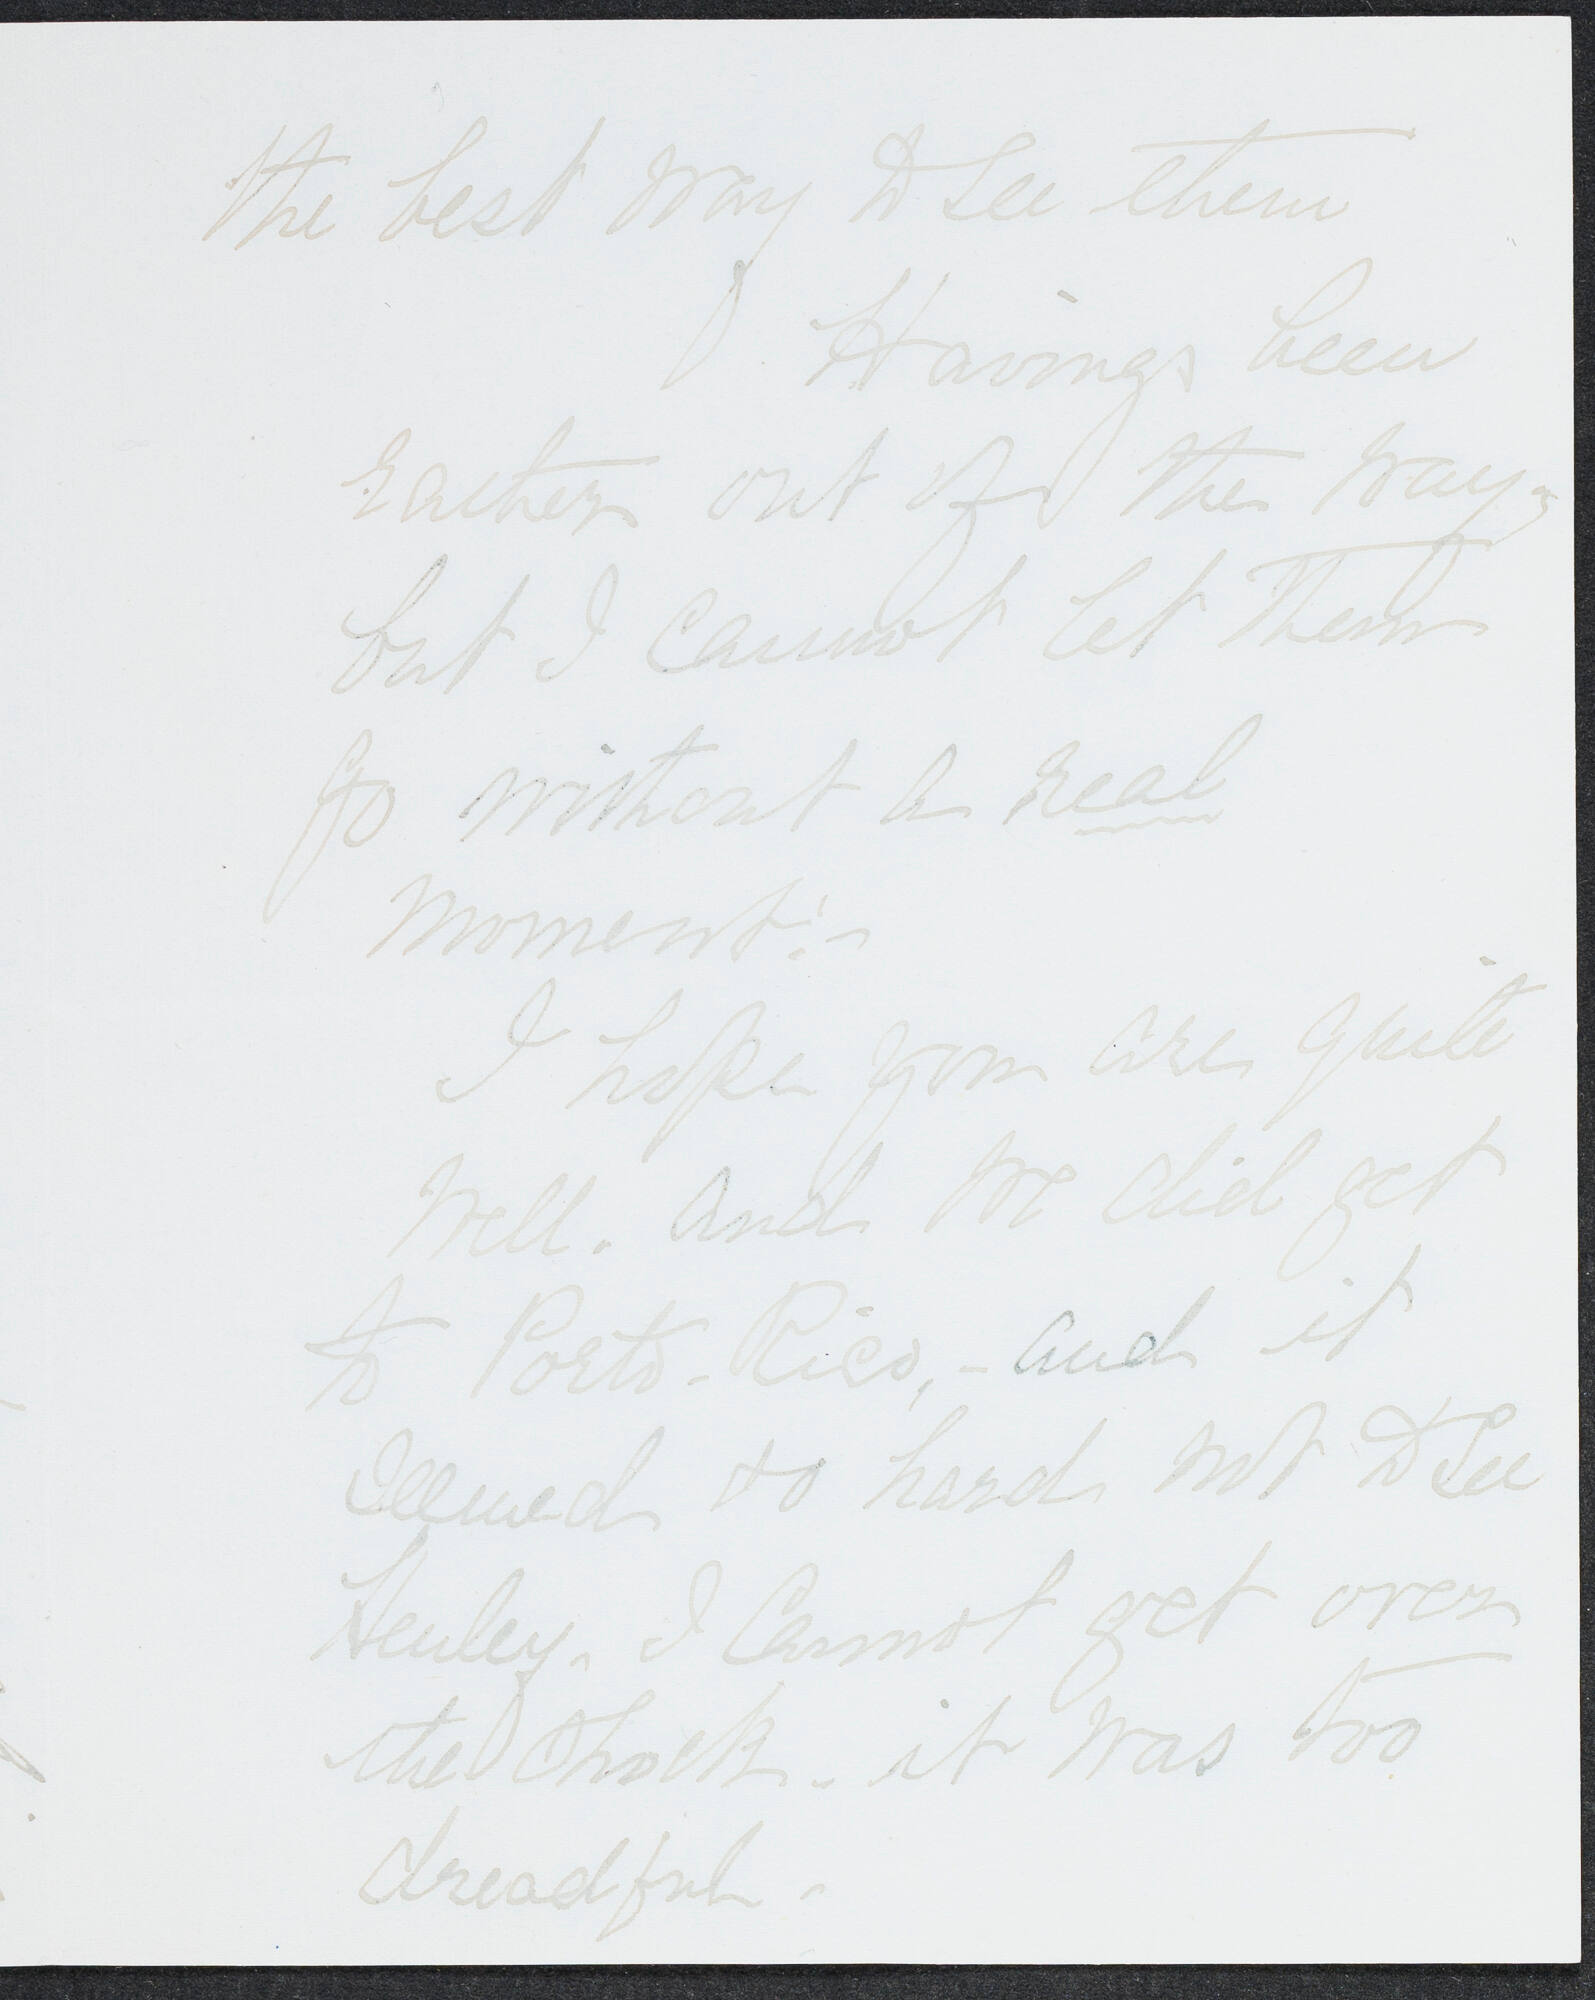 the best way to see them
Having been
rather out of the way,
but I cannot let them
go without a real
moment:-
I hope you are quite
well. And we did get
to Porto-Rico, - and it
seemed to hard not to see
Henley. I cannot get over
the shock - it was too
dreadful -